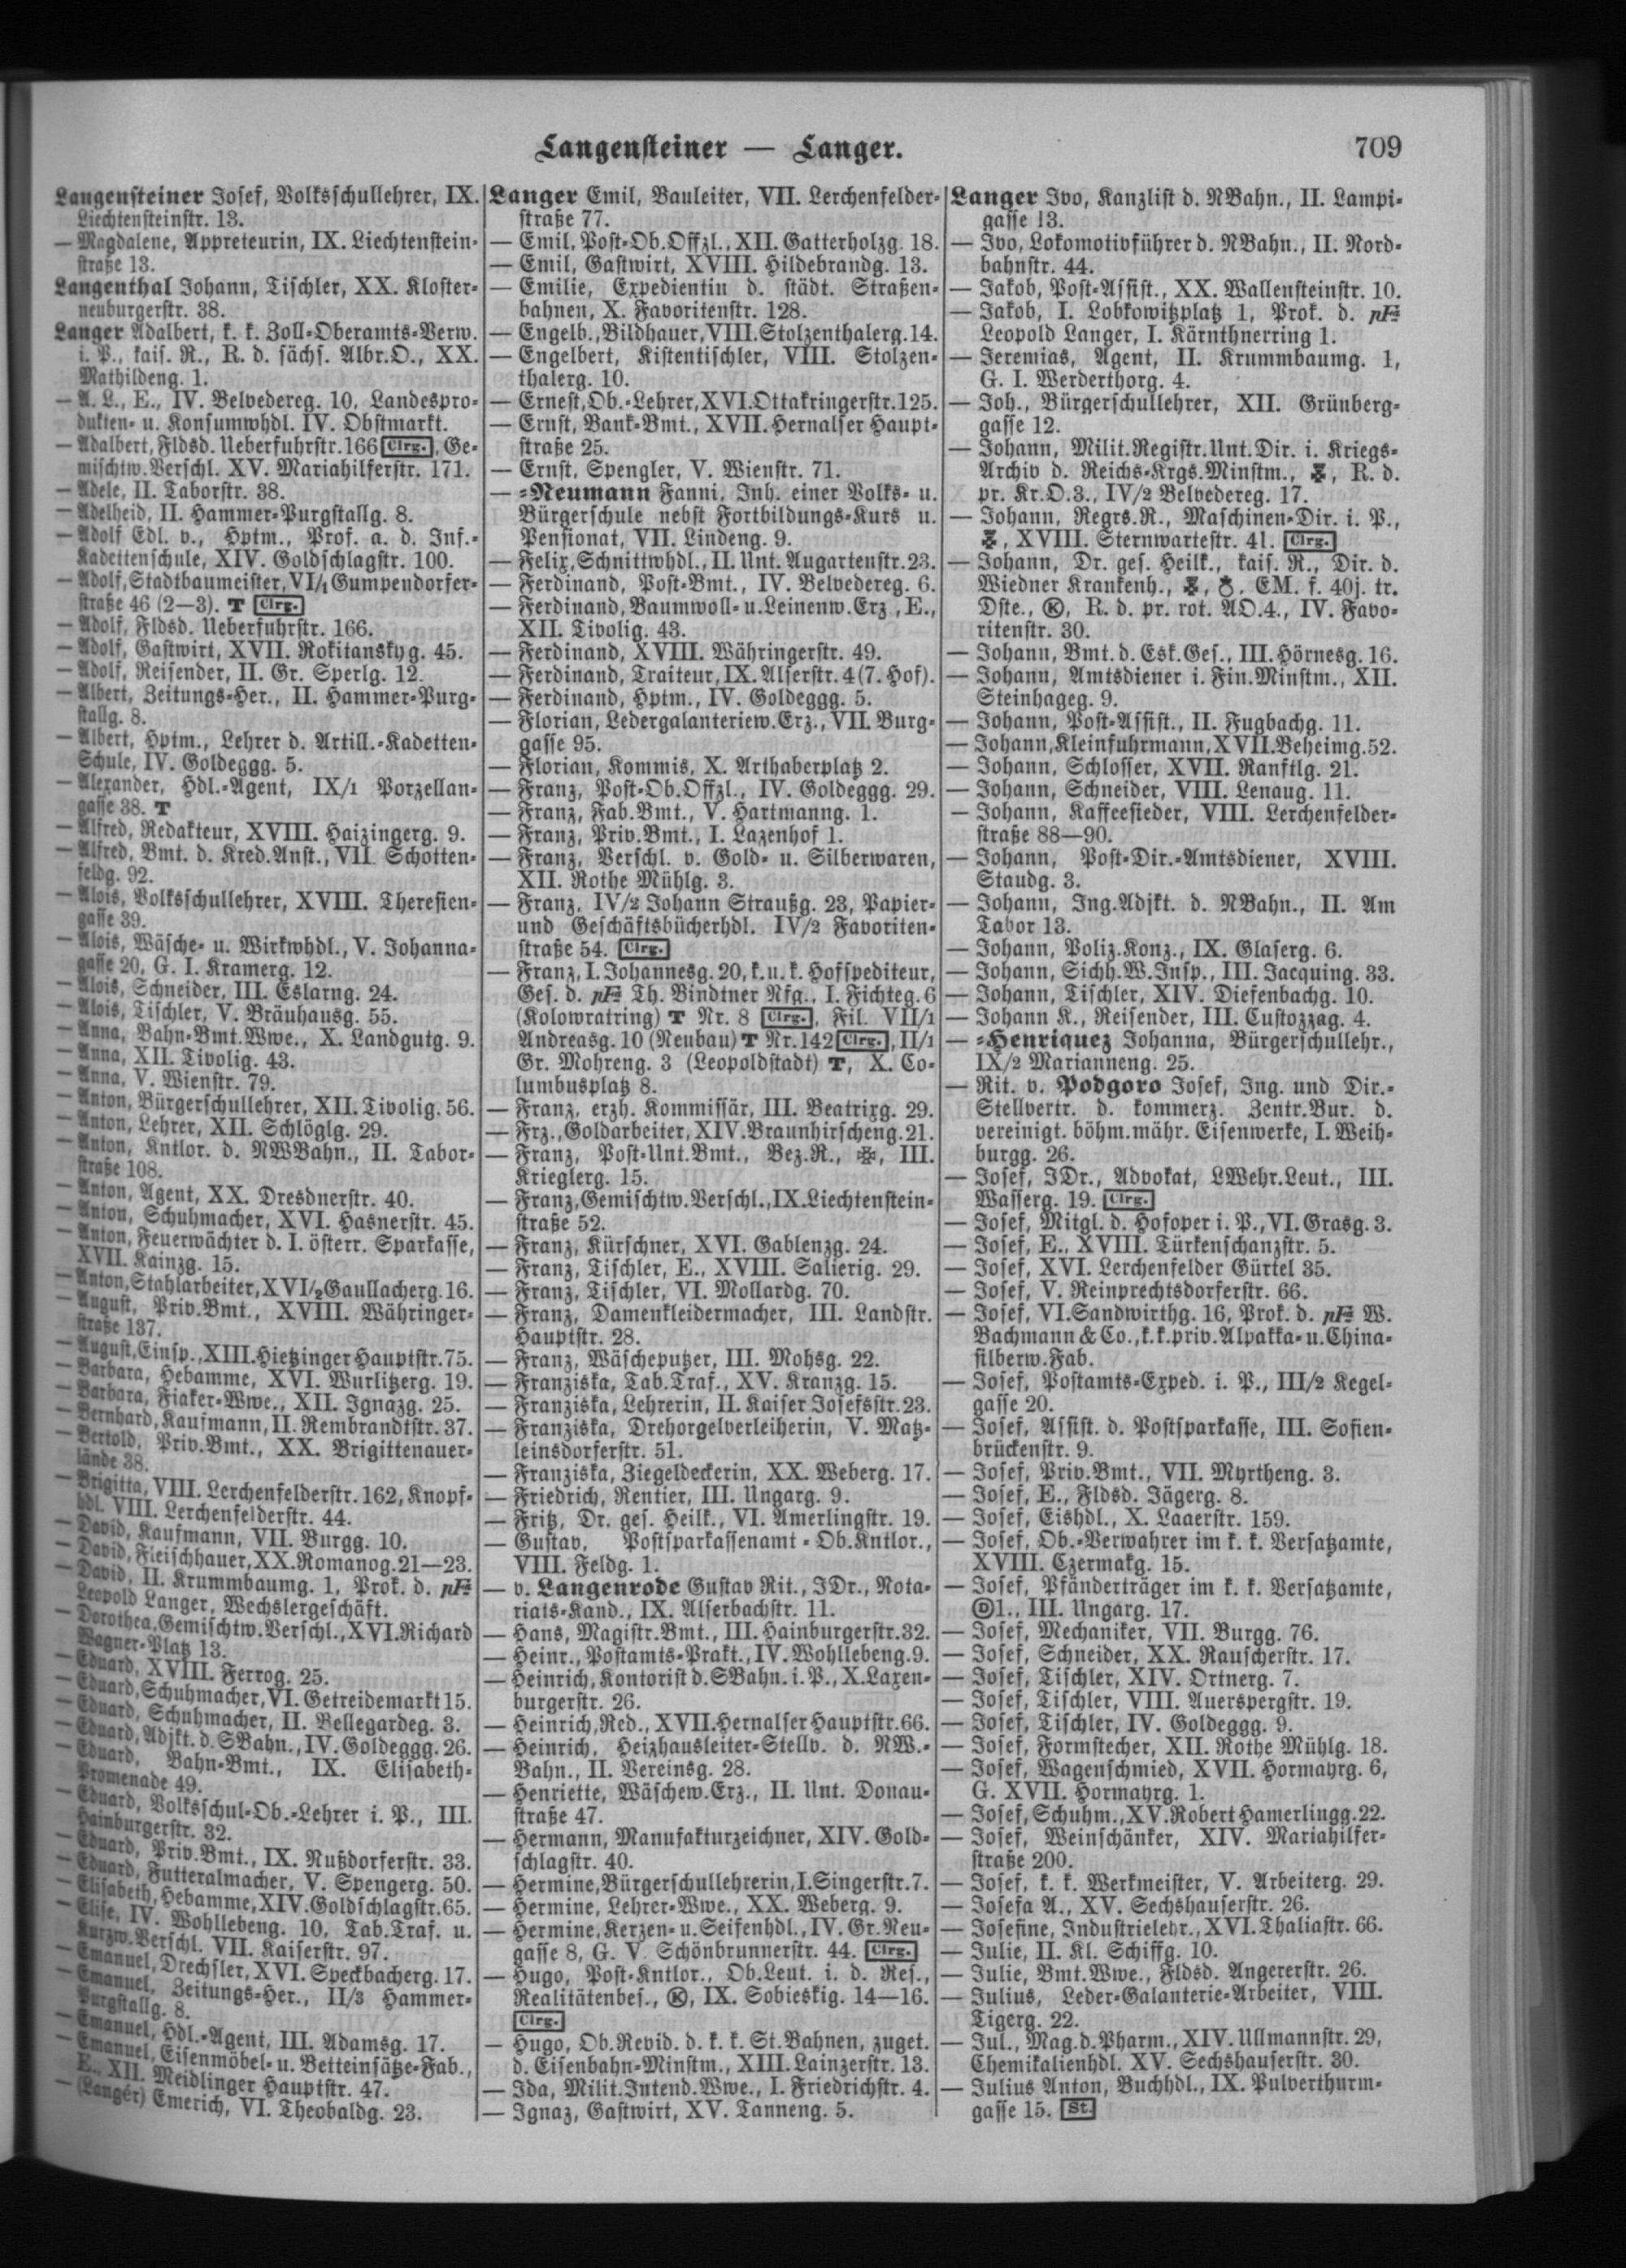 Langensteiner — Langer.
709
Langensteiner Josef, Volksschullehrer, IX.
Liechtensteinstr. 13.
— Magdalene, Appreteurin, IX. Liechtenstein-
straße 13.
Langenthal Johann, Tischler, XX. Kloster-
neuburgerstr. 38.
Langer Adalbert, k. k. Zoll-Oberamts-Verw.
i. P., kais. R., R. d. sächs. Albr.O., XX.
Mathildeng. 1.
— A. L., E., IV. Belvedereg. 10, Landespro-
dukten- u. Konsumwhdl. IV. Obstmarkt.
— Adalbert, Fldsd. Ueberfuhrstr. 166 Clrg., Ge-
mischtw. Verschl. XV. Mariahilferstr. 171.
— Adele, II. Taborstr. 38.
— Adelheid, II. Hammer-Purgstallg. 8.
— Adolf Edl. v., Hptm., Prof. a. d. Inf.-
Kadettenschule, XIV. Goldschlagstr. 100.
— Adolf, Stadtbaumeister, VI/1 Gumpendorfer-
straße 46 (2—3). T Clrg.
— Adolf, Fldsd. Ueberfuhrstr. 166.
— Adolf, Gastwirt, XVII. Rokitanskyg. 45.
— Adolf, Reisender, II. Gr. Sperlg. 12.
— Albert, Zeitungs-Her., II. Hammer-Purg-
stallg. 8.
— Albert, Hptm., Lehrer d. Artill.-Kadetten-
Schule, IV. Goldeggg. 5.
— Alexander, Hdl.-Agent, IX/1 Porzellan-
gasse 38. T
— Alfred, Redakteur, XVIII. Haizingerg. 9.
— Alfred, Bmt. d. Kred.Anst., VII. Schotten-
feldg. 92.
— Alois, Volksschullehrer, XVIII. Theresien-
gasse 39.
— Alois, Wäsche- u. Wirkwhdl., V. Johanna-
gasse 20, G. I. Kramerg. 12.
— Alois, Schneider, III. Eslarng. 24.
— Alois, Tischler, V. Bräuhausg. 55.
— Anna, Bahn-Bmt.Wwe., X. Landgutg. 9.
— Anna, XII. Tivolig. 43.
— Anna, V. Wienstr. 79.
— Anton, Bürgerschullehrer, XII. Tivolig. 56.
— Anton, Lehrer, XII. Schlöglg. 29.
— Anton, Kntlor. d. NWBahn., II. Tabor-
straße 108.
— Anton, Agent, XX. Dresdnerstr. 40.
— Anton, Schuhmacher, XVI. Hasnerstr. 45.
— Anton, Feuerwächter d. I. österr. Sparkasse,
XVII. Kainzg. 15.
— Anton, Stahlarbeiter, XVI/2 Gaullacherg. 16.
— August, Priv.Bmt., XVIII. Währinger-
straße 137.
— August, Einsp., XIII. Hietzinger Hauptstr. 75.
— Barbara, Hebamme, XVI. Wurlitzerg. 19.
— Barbara, Fiaker-Wwe., XII. Ignazg. 25.
— Bernhard, Kaufmann, II. Rembrandtstr. 37.
— Bertold, Priv.Bmt., XX. Brigittenauer-
lände 38.
— Brigitta, VIII. Lerchenfelderstr. 162, Knopf-
hdl. VIII. Lerchenfelderstr. 44.
— David, Kaufmann, VII. Burgg. 10.
— David, Fleischhauer, XX. Romanog. 21—23.
— David, II. Krummbaumg. 1, Prok. d. pF
Leopold Langer, Wechslergeschäft.
— Dorothea, Gemischtw. Verschl., XVI. Richard
Wagner-Platz 13.
— Eduard, XVIII. Ferrog. 25.
— Eduard, Schuhmacher, VI. Getreidemarkt 15.
— Eduard, Schuhmacher, II. Bellegardeg. 3.
— Eduard, Adjkt. d. SBahn., IV. Goldeggg. 26.
— Eduard, Bahn-Bmt., IX. Elisabeth-
Promenade 49.
— Eduard, Volksschul-Ob.-Lehrer i. P., III.
Hainburgerstr. 32.
— Eduard, Priv.Bmt., IX. Nußdorferstr. 33.
— Eduard, Futteralmacher, V. Spengerg. 50.
— Elisabeth, Hebamme, XIV. Goldschlagstr. 65.
— Elise, IV. Wohllebeng. 10, Tab.Traf. u.
Kurzw. Verschl. VII. Kaiserstr. 97.
— Emanuel, Drechsler, XVI. Speckbacherg. 17.
— Emanuel, Zeitungs-Her., II/3 Hammer-
Purgstallg. 8.
— Emanuel, Hdl.-Agent, III. Adamsg. 17.
— Emanuel, Eisenmöbel- u. Betteinsätze-Fab.,
E., XII. Meidlinger Hauptstr. 47.
— (Langér) Emerich, VI. Theobaldg. 23.
Langer Emil, Bauleiter, VII. Lerchenfelder-
straße 77.
— Emil, Post-Ob.Offzl., XII. Gatterholzg. 18.
— Emil, Gastwirt, XVIII. Hildebrandg. 13.
— Emilie, Expedientin d. städt. Straßen-
bahnen, X. Favoritenstr. 128.
— Engelb., Bildhauer, VIII. Stolzenthalerg. 14.
— Engelbert, Kistentischler, VIII. Stolzen-
thalerg. 10.
— Ernest, Ob.-Lehrer, XVI. Ottakringerstr. 125.
— Ernst, Bank-Bmt., XVII. Hernalser Haupt-
straße 25.
— Ernst, Spengler, V. Wienstr. 71.
— -Neumann Fanni, Inh. einer Volks- u.
Bürgerschule nebst Fortbildungs-Kurs u.
Pensionat, VII. Lindeng. 9.
— Felix, Schnittwhdl., II. Unt. Augartenstr. 23.
— Ferdinand, Post-Bmt., IV. Belvedereg. 6.
— Ferdinand, Baumwoll- u. Leinenw. Erz., E.,
XII. Tivolig. 43.
— Ferdinand, XVIII. Währingerstr. 49.
— Ferdinand, Traiteur, IX. Alserstr. 4 (7. Hof).
— Ferdinand, Hptm., IV. Goldeggg. 5.
— Florian, Ledergalanteriew. Erz., VII. Burg-
gasse 95.
— Florian, Kommis, X. Arthaberplatz 2.
— Franz, Post-Ob.Offzl., IV. Goldeggg. 29.
— Franz, Fab.Bmt., V. Hartmanng. 1.
— Franz, Priv.Bmt., I. Lazenhof 1.
— Franz, Verschl. v. Gold- u. Silberwaren,
XII. Rothe Mühlg. 3.
— Franz, IV/2 Johann Straußg. 23, Papier-
und Geschäftsbücherhdl. IV/2 Favoriten-
straße 54. Clrg.
— Franz, I. Johannesg. 20, k. u. k. Hofspediteur,
Ges. d. pF Th. Bindtner Nfg., I. Fichteg. 6
(Kolowratring) T Nr. 8 Clrg., Fil. VII/1
Andreasg. 10 (Neubau) T Nr. 142 Clrg., II/1
Gr. Mohreng. 3 (Leopoldstadt) T, X. Co-
lumbusplatz 8.
— Franz, erzh. Kommissär, III. Beatrixg. 29.
— Frz., Goldarbeiter, XIV. Braunhirscheng. 21.
— Franz, Post-Unt.Bmt., Bez.R., ✠, III.
Krieglerg. 15.
— Franz, Gemischtw. Verschl., IX. Liechtenstein-
straße 52.
— Franz, Kürschner, XVI. Gablenzg. 24.
— Franz, Tischler, E., XVIII. Salierig. 29.
— Franz, Tischler, VI. Mollardg. 70.
— Franz, Damenkleidermacher, III. Landstr.
Hauptstr. 28.
— Franz, Wäscheputzer, III. Mohsg. 22.
— Franziska, Tab.Traf., XV. Kranzg. 15.
— Franziska, Lehrerin, II. Kaiser Josefsstr. 23.
— Franziska, Drehorgelverleiherin, V. Matz-
leinsdorferstr. 51.
— Franziska, Ziegeldeckerin, XX. Weberg. 17.
— Friedrich, Rentier, III. Ungarg. 9.
— Fritz, Dr. ges. Heilk., VI. Amerlingstr. 19.
— Gustav, Postsparkassenamt-Ob.Kntlor.,
VIII. Feldg. 1.
— v. Langenrode Gustav Rit., JDr., Nota-
riats-Kand., IX. Alserbachstr. 11.
— Hans, Magistr.Bmt., III. Hainburgerstr. 32.
— Heinr., Postamts-Prakt., IV. Wohllebeng. 9.
— Heinrich, Kontorist d. SBahn. i. P., X. Laxen-
burgerstr. 26.
— Heinrich, Red., XVII. Hernalser Hauptstr. 66.
— Heinrich, Heizhausleiter-Stellv. d. NW.-
Bahn., II. Vereinsg. 28.
— Henriette, Wäschew. Erz., II. Unt. Donau-
straße 47.
— Hermann, Manufakturzeichner, XIV. Gold-
schlagstr. 40.
— Hermine, Bürgerschullehrerin, I. Singerstr. 7.
— Hermine, Lehrer-Wwe., XX. Weberg. 9.
— Hermine, Kerzen- u. Seifenhdl., IV. Gr. Neu-
gasse 8, G. V. Schönbrunnerstr. 44. Clrg.
— Hugo, Post-Kntlor., Ob.Leut. i. d. Res.,
Realitätenbes., Ⓚ, IX. Sobieskig. 14—16.
Clrg.
— Hugo, Ob.Revid. d. k. k. St.Bahnen, zuget.
d. Eisenbahn-Minstm., XIII. Lainzerstr. 13.
— Ida, Milit.Intend.Wwe., I. Friedrichstr. 4.
— Ignaz, Gastwirt, XV. Tanneng. 5.
Langer Ivo, Kanzlist d. NBahn., II. Lampi-
gasse 13.
— Ivo, Lokomotivführer d. NBahn., II. Nord-
bahnstr. 44.
— Jakob, Post-Assist., XX. Wallensteinstr. 10.
— Jakob, I. Lobkowitzplatz 1, Prok. d. pF
Leopold Langer, I. Kärnthnerring 1.
— Jeremias, Agent, II. Krummbaumg. 1,
G. I. Werderthorg. 4.
— Joh., Bürgerschullehrer, XII. Grünberg-
gasse 12.
— Johann, Milit.Registr.Unt.Dir. i. Kriegs-
Archiv d. Reichs-Krgs.Minstm., R. d.
pr. Kr.O.3., IV/2 Belvedereg. 17.
— Johann, Regrs.R., Maschinen-Dir. i. P.,
XVIII. Sternwartestr. 41. Clrg.
— Johann, Dr. ges. Heilk., kais. R., Dir. d.
Wiedner Krankenh., EM. f. 40j. tr.
Dste., Ⓚ, R. d. pr. rot. AO.4., IV. Favo-
ritenstr. 30.
— Johann, Bmt. d. Esk.Ges., III. Hörnesg. 16.
— Johann, Amtsdiener i. Fin.Minstm., XII.
Steinhageg. 9.
— Johann, Post-Assist., II. Fugbachg. 11.
— Johann, Kleinfuhrmann, XVII. Beheimg. 52.
— Johann, Schlosser, XVII. Ranftlg. 21.
— Johann, Schneider, VIII. Lenaug. 11.
— Johann, Kaffeesieder, VIII. Lerchenfelder-
straße 88—90.
— Johann, Post-Dir.-Amtsdiener, XVIII.
Staudg. 3.
— Johann, Ing.Adjkt. d. NBahn., II. Am
Tabor 13.
— Johann, Poliz.Konz., IX. Glaserg. 6.
— Johann, Sichh.W.Insp., III. Jacquing. 33.
— Johann, Tischler, XIV. Diefenbachg. 10.
— Johann K., Reisender, III. Custozzag. 4.
— -Henriquez Johanna, Bürgerschullehr.,
IX/2 Marianneng. 25.
— Rit. v. Podgoro Josef, Ing. und Dir.-
Stellvertr. d. kommerz. Zentr.Bur. d.
vereinigt. böhm.mähr. Eisenwerke, I. Weih-
burgg. 26.
— Josef, JDr., Advokat, LWehr.Leut., III.
Wasserg. 19. Clrg.
— Josef, Mitgl. d. Hofoper i. P., VI. Grasg. 3.
— Josef, E., XVIII. Türkenschanzstr. 5.
— Josef, XVI. Lerchenfelder Gürtel 35.
— Josef, V. Reinprechtsdorferstr. 66.
— Josef, VI. Sandwirthg. 16, Prok. d. pF W.
Bachmann & Co., k. k. priv. Alpakka- u. China-
silberw. Fab.
— Josef, Postamts-Exped. i. P., III/2 Kegel-
gasse 20.
— Josef, Assist. d. Postsparkasse, III. Sofien-
brückenstr. 9.
— Josef, Priv.Bmt., VII. Myrtheng. 3.
— Josef, E., Fldsd. Jägerg. 8.
— Josef, Eishdl., X. Laaerstr. 159.
— Josef, Ob.-Verwahrer im k. k. Versatzamte,
XVIII. Czermakg. 15.
— Josef, Pfänderträger im k. k. Versatzamte,
Ⓓ1., III. Ungarg. 17.
— Josef, Mechaniker, VII. Burgg. 76.
— Josef, Schneider, XX. Rauscherstr. 17.
— Josef, Tischler, XIV. Ortnerg. 7.
— Josef, Tischler, VIII. Auerspergstr. 19.
— Josef, Tischler, IV. Goldeggg. 9.
— Josef, Formstecher, XII. Rothe Mühlg. 18.
— Josef, Wagenschmied, XVII. Hormayrg. 6,
G. XVII. Hormayrg. 1.
— Josef, Schuhm., XV. Robert Hamerlingg. 22.
— Josef, Weinschänker, XIV. Mariahilfer-
straße 200.
— Josef, k. k. Werkmeister, V. Arbeiterg. 29.
— Josefa A., XV. Sechshauserstr. 26.
— Josefine, Industrielehr., XVI. Thaliastr. 66.
— Julie, II. Kl. Schiffg. 10.
— Julie, Bmt.Wwe., Fldsd. Angererstr. 26.
— Julius, Leder-Galanterie-Arbeiter, VIII.
Tigerg. 22.
— Jul., Mag.d.Pharm., XIV. Ullmannstr. 29,
Chemikalienhdl. XV. Sechshauserstr. 30.
— Julius Anton, Buchhdl., IX. Pulverthurm-
gasse 15. St.